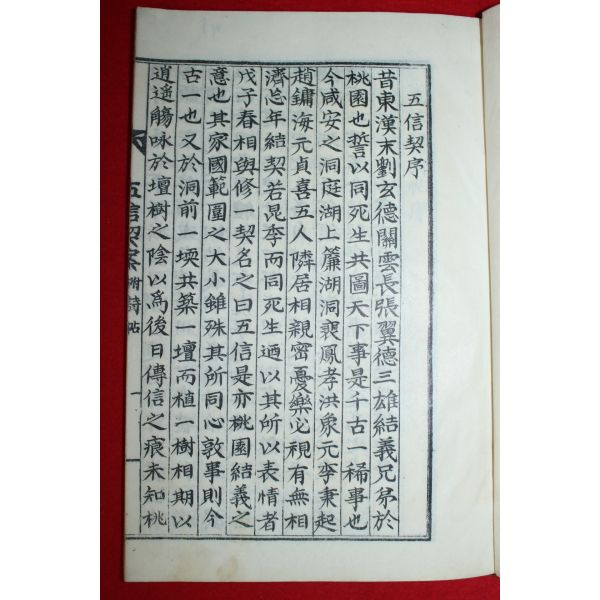 五信契序
昔東漢末劉玄德關雲長張翼德三雄結義兄弟於
桃園也誓以同死生共圖天下事是千古一稀事也
今咸安之洞庭湖上簾湖洞裵鳳孝洪象元李秉起
趙鏞海元貞喜五人隣居相親密憂樂必視有無相
濟忘年結契若昆季而同死生迺以其所以表情者
戊子春相與修一契名之曰五信是亦桃園結義之
意也其家國範圍之大小雖殊其所同心敦事則今
古一也又於洞前一堧共築一壇而植一樹相期以
逍遙觴咏於壇樹之陰以爲後日傳信之痕未知桃
五信契案 附詩帖 一